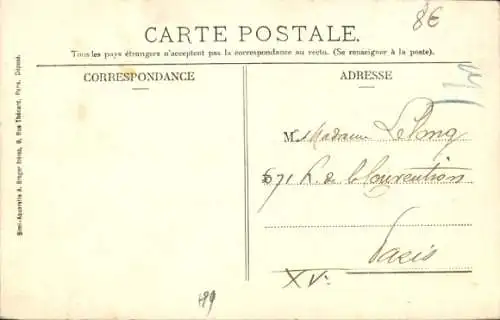 8€
CARTE POSTALE.
Tous les pays étrangers n'acceptent pas la correspondance au recto. (Se renseigner à la poste).
CORRESPONDANCE
ADRESSE
M. Madame Lelong
71 R. de la Convention
Paris
XVe
489
Simi-Aquarelle A. Breger frères, 9, Rue Thénard, Paris, Déposé.